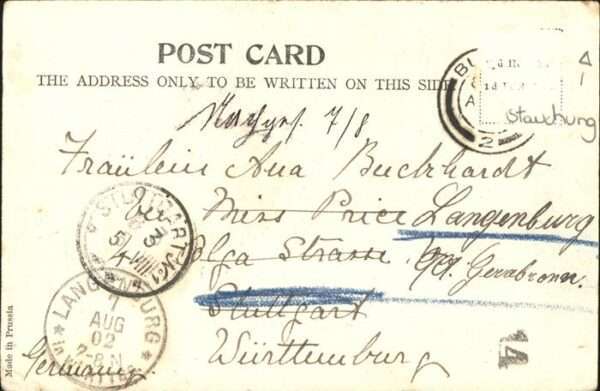 POST CARD
THE ADDRESS ONLY TO BE WRITTEN ON THIS SIDE
BU
A
2
Nachges. 7/8
Fräulein Ana Buckhardt
bei Miss Price Langenburg
Olga Strasse O/A. Gerabronn.
Stuttgart
Württemburg
Germany
STUTTGART No 1
3 VIII
LANGENBURG
7
AUG
02
7-8 N
14
Made in Prussia